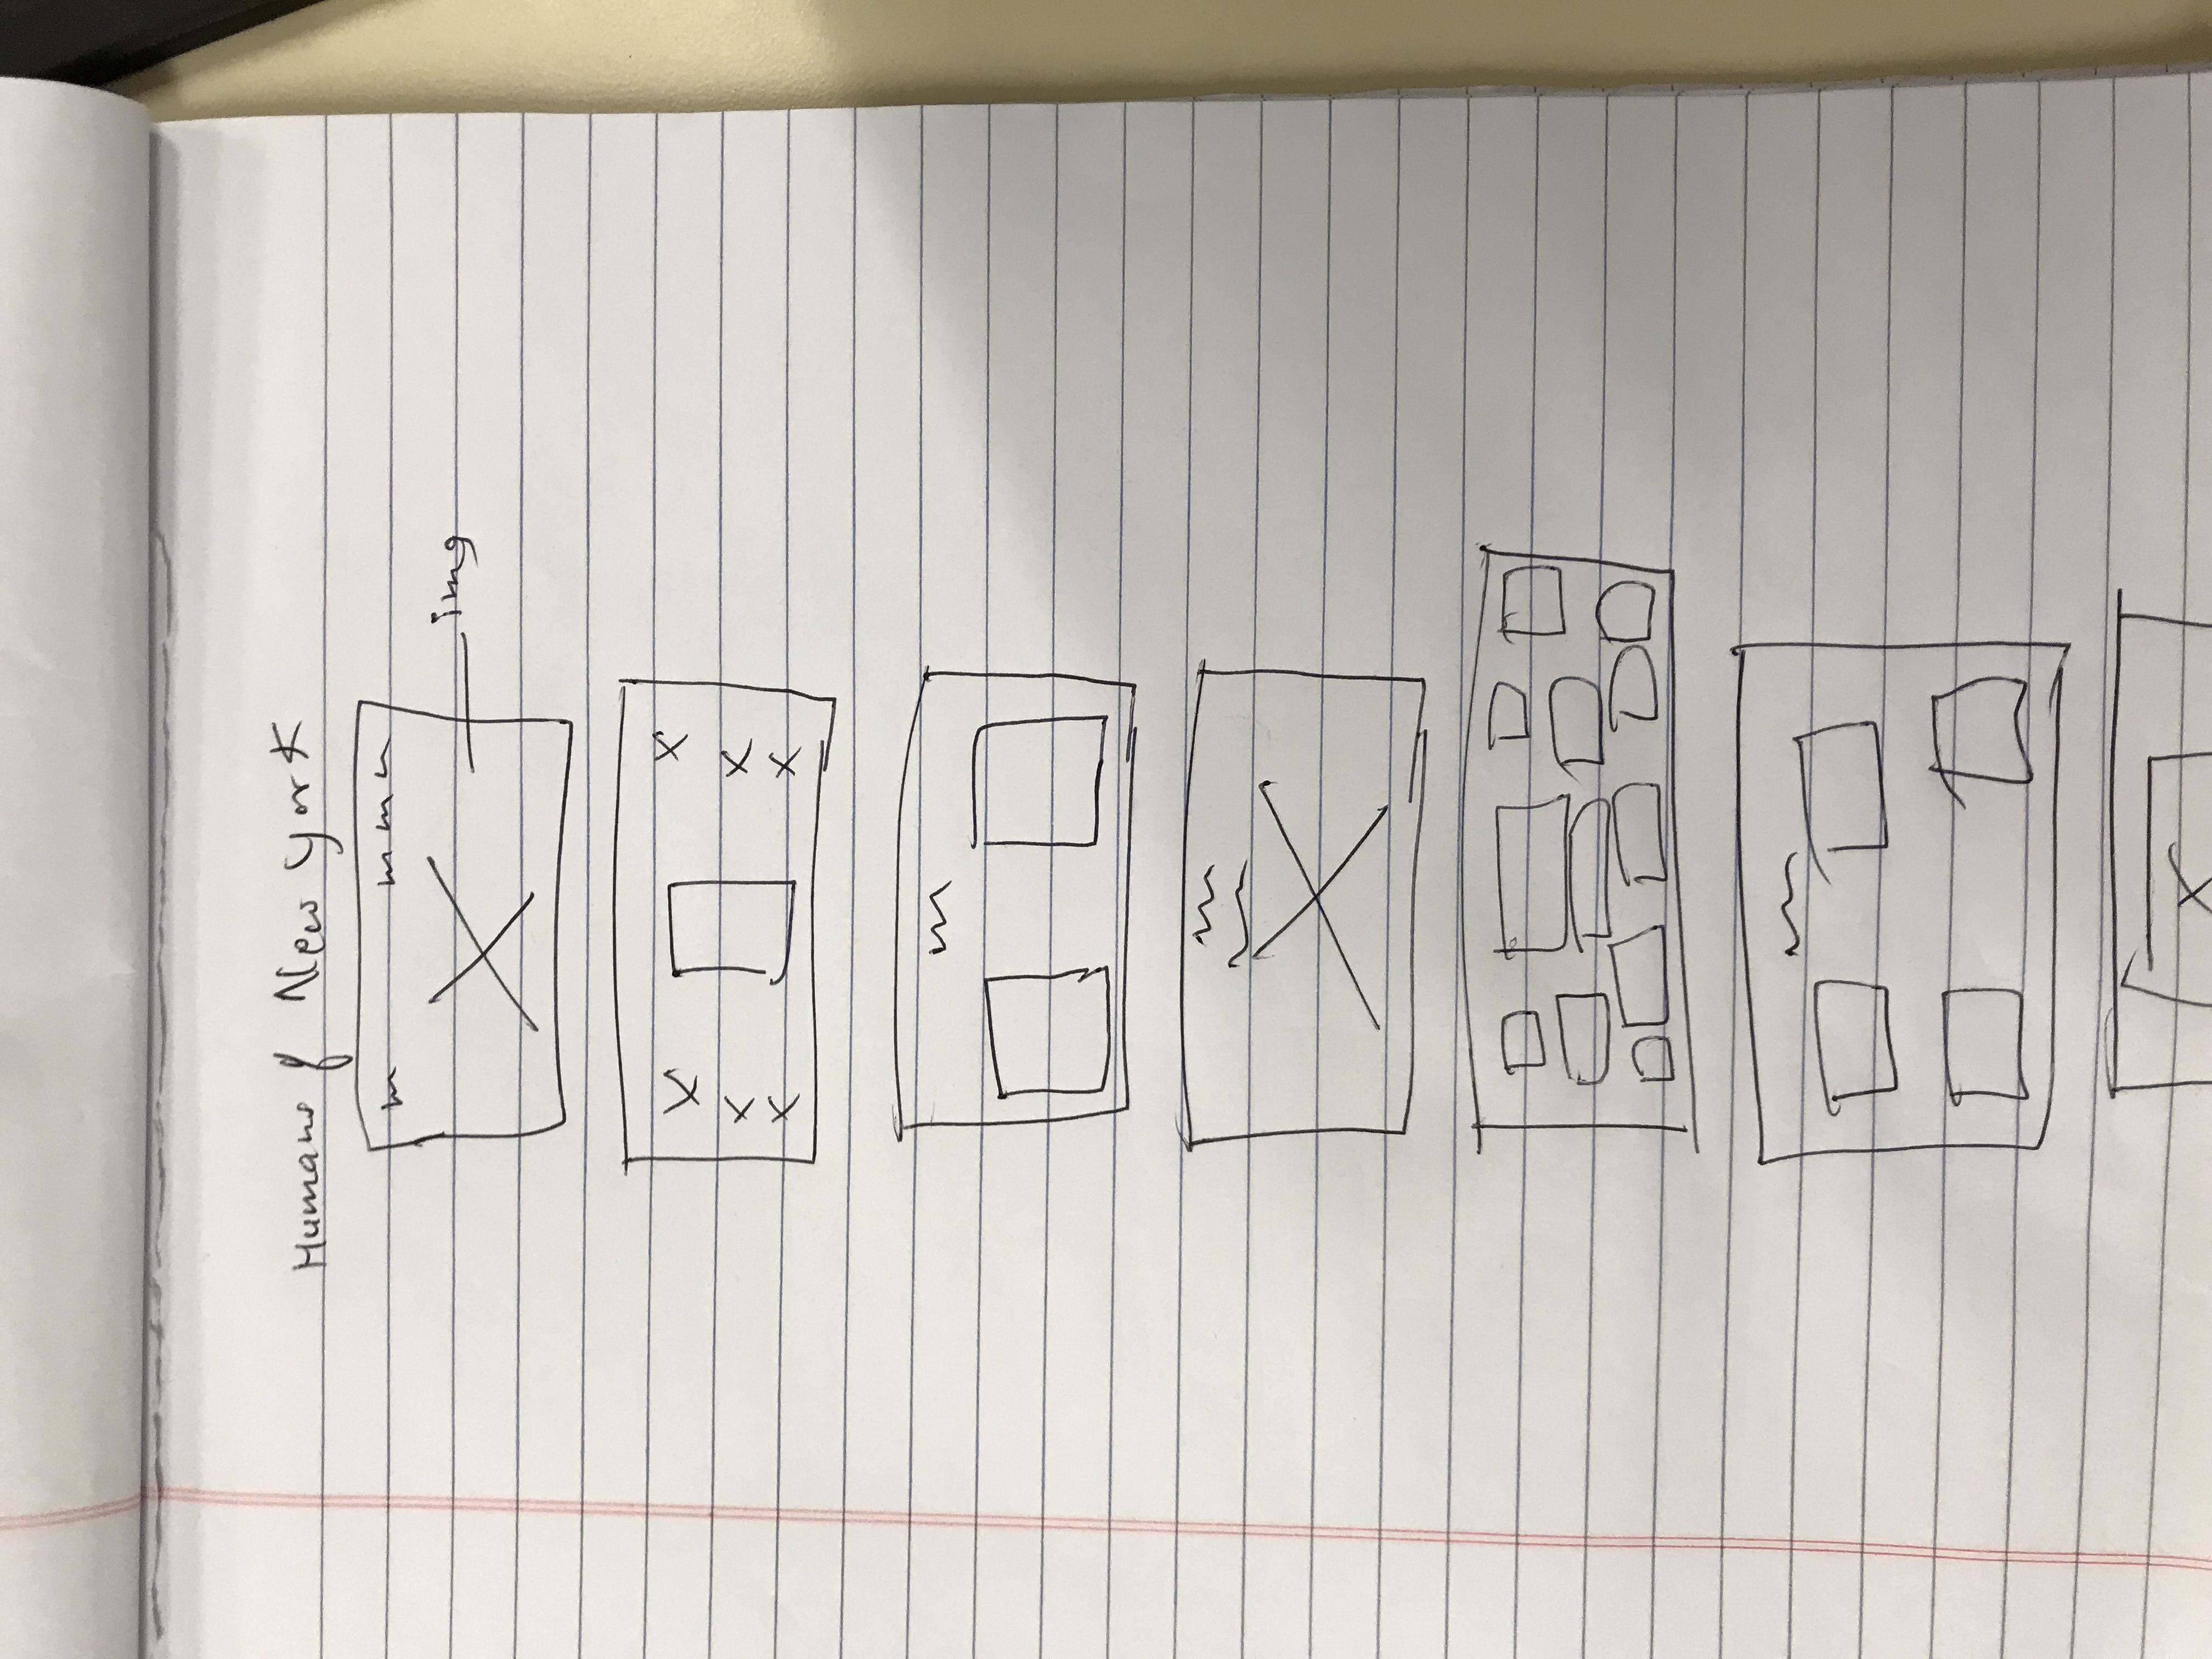 Humans of New York
img